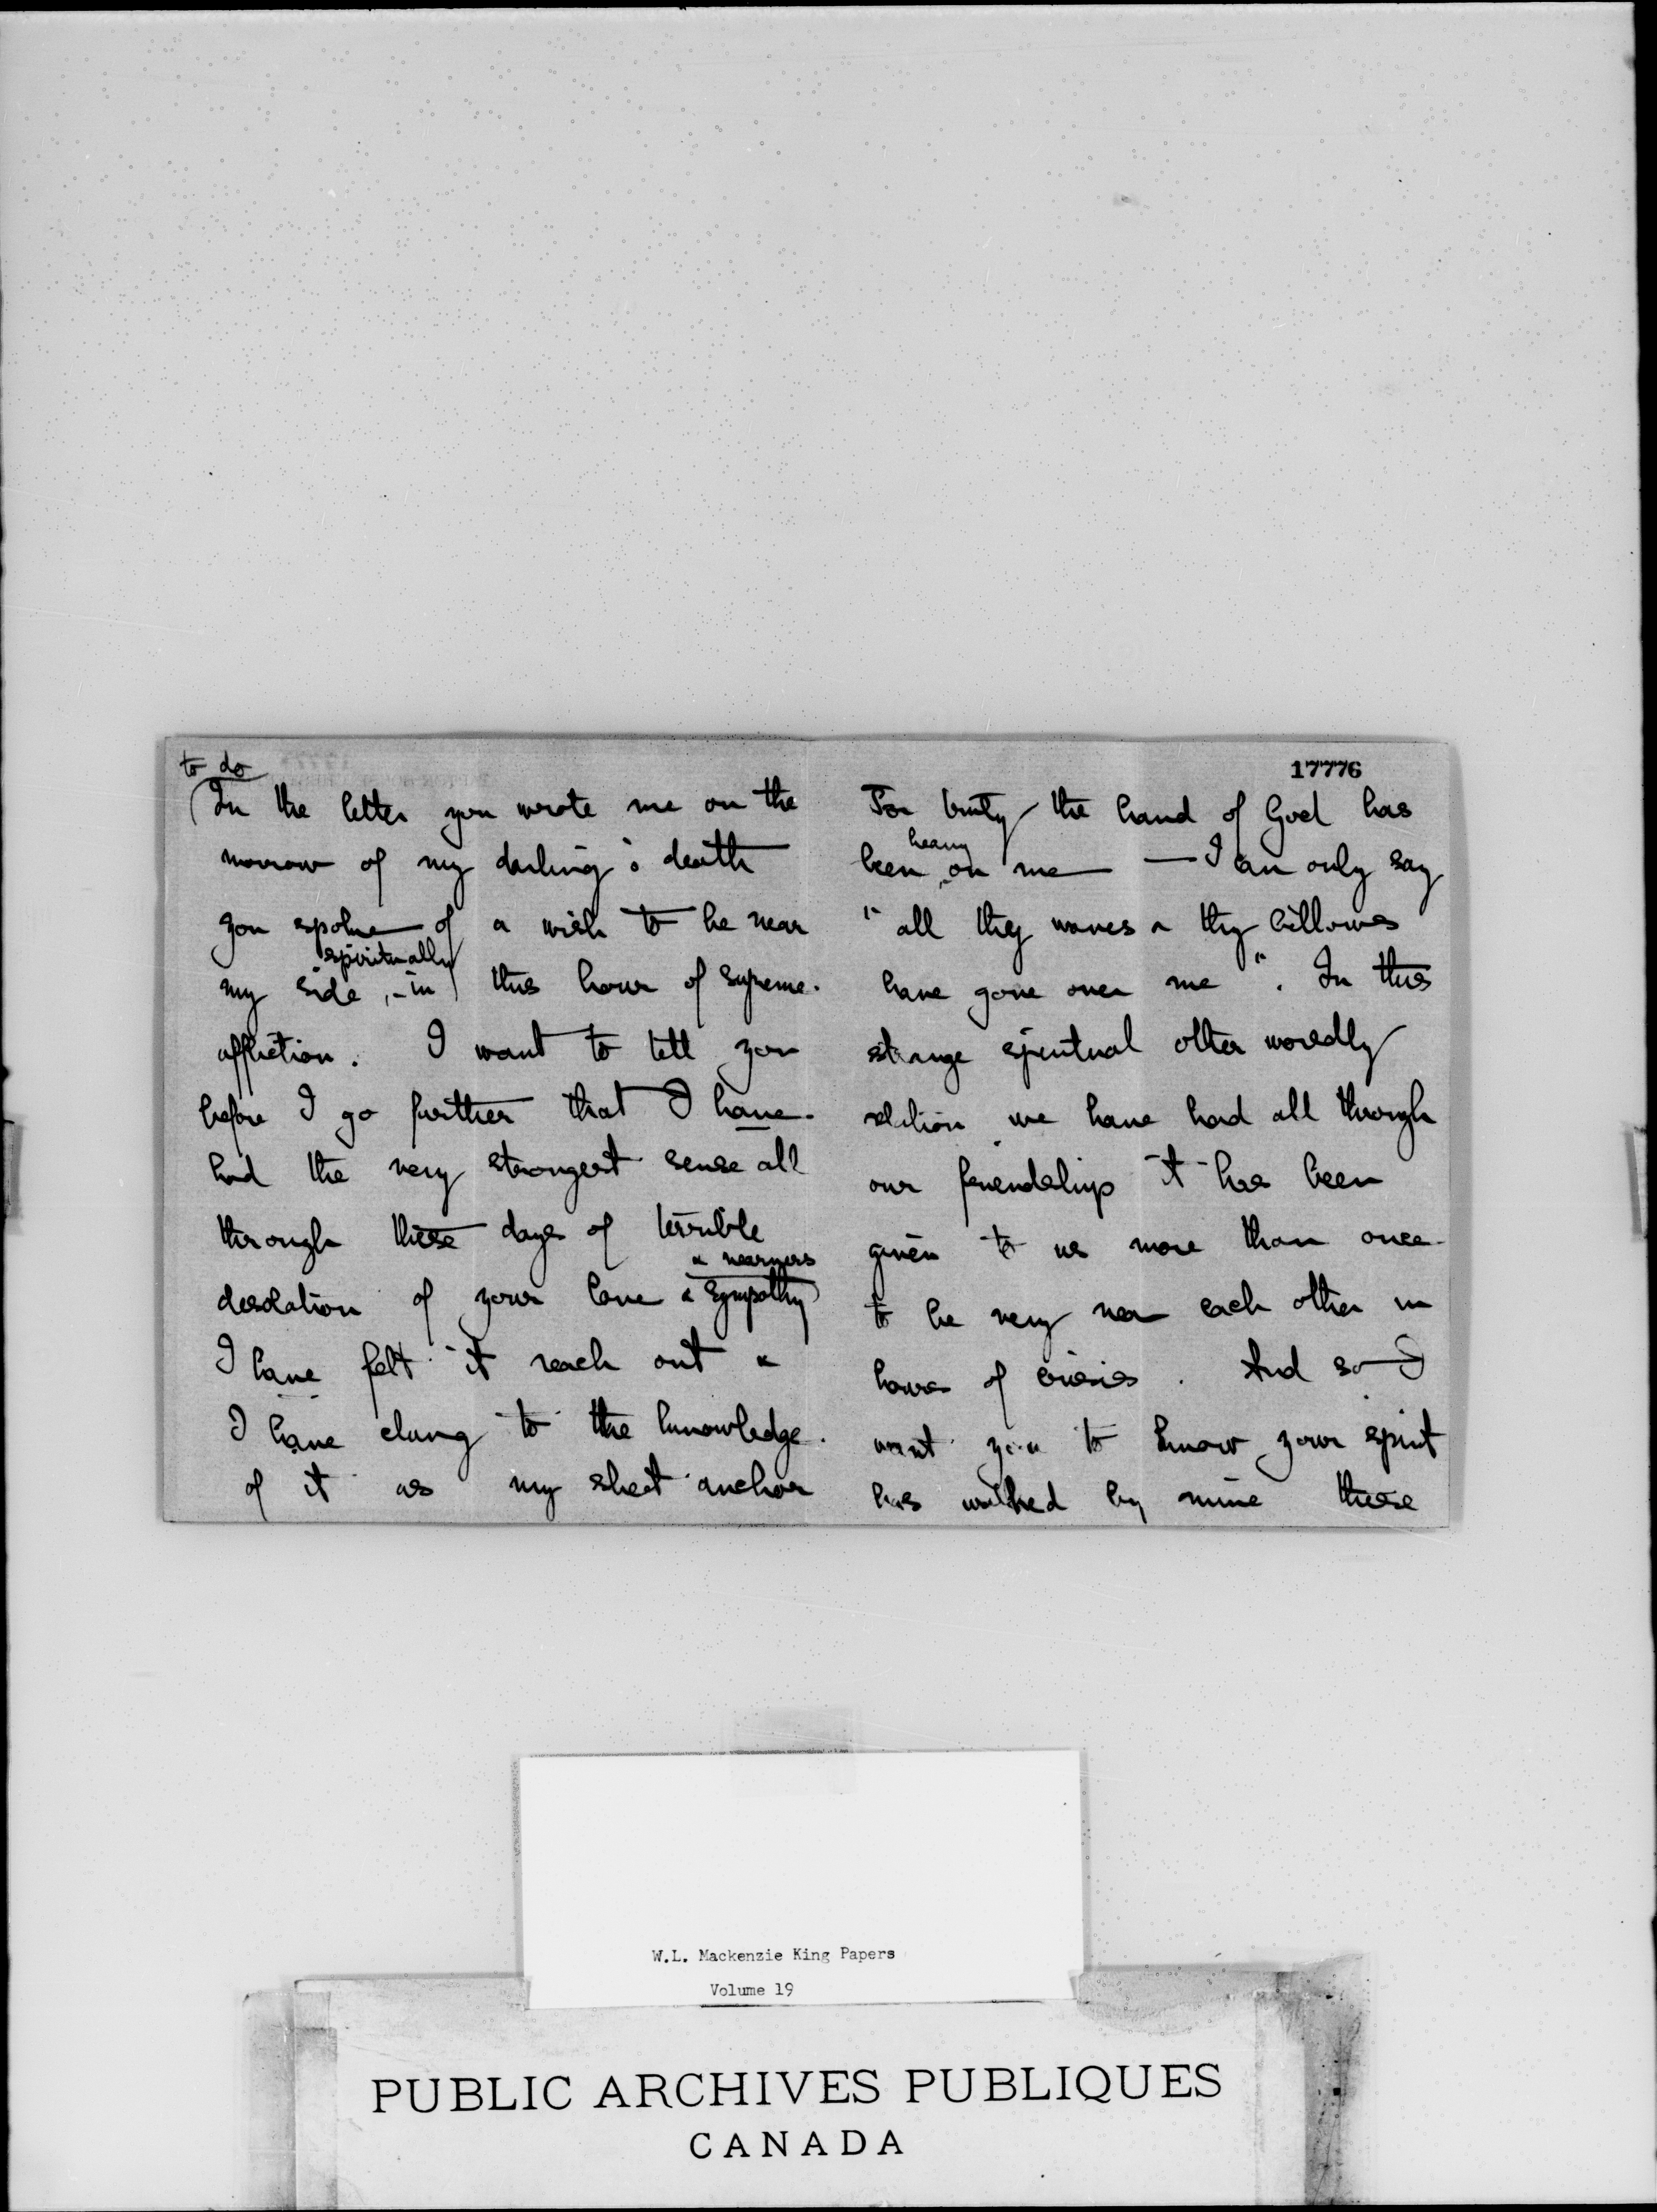 to do
In the letter you wrote me on the
morrow of my darling's death
you spoke of a wish to be near
spiritually
my side, - in this hour of supreme
affliction. I want to tell you
before I go further that I have
had the very strongest sense all
through these days of terrible
& nearness
desolation of your love & sympathy
I have felt it reach out &
I have clung to the knowledge
of it as my sheet anchor
17776
For truly the hand of God has
heavy
been on me — I can only say
"all thy waves & thy billows
have gone over me". In this
strange spiritual other worldly
relation we have had all through
our friendship it has been
given to us more than once
to be very near each other in
hours of crisis. And so I
want you to know your spirit
has walked by mine these
W.L. Mackenzie King Papers
Volume 19
PUBLIC ARCHIVES PUBLIQUES
CANADA